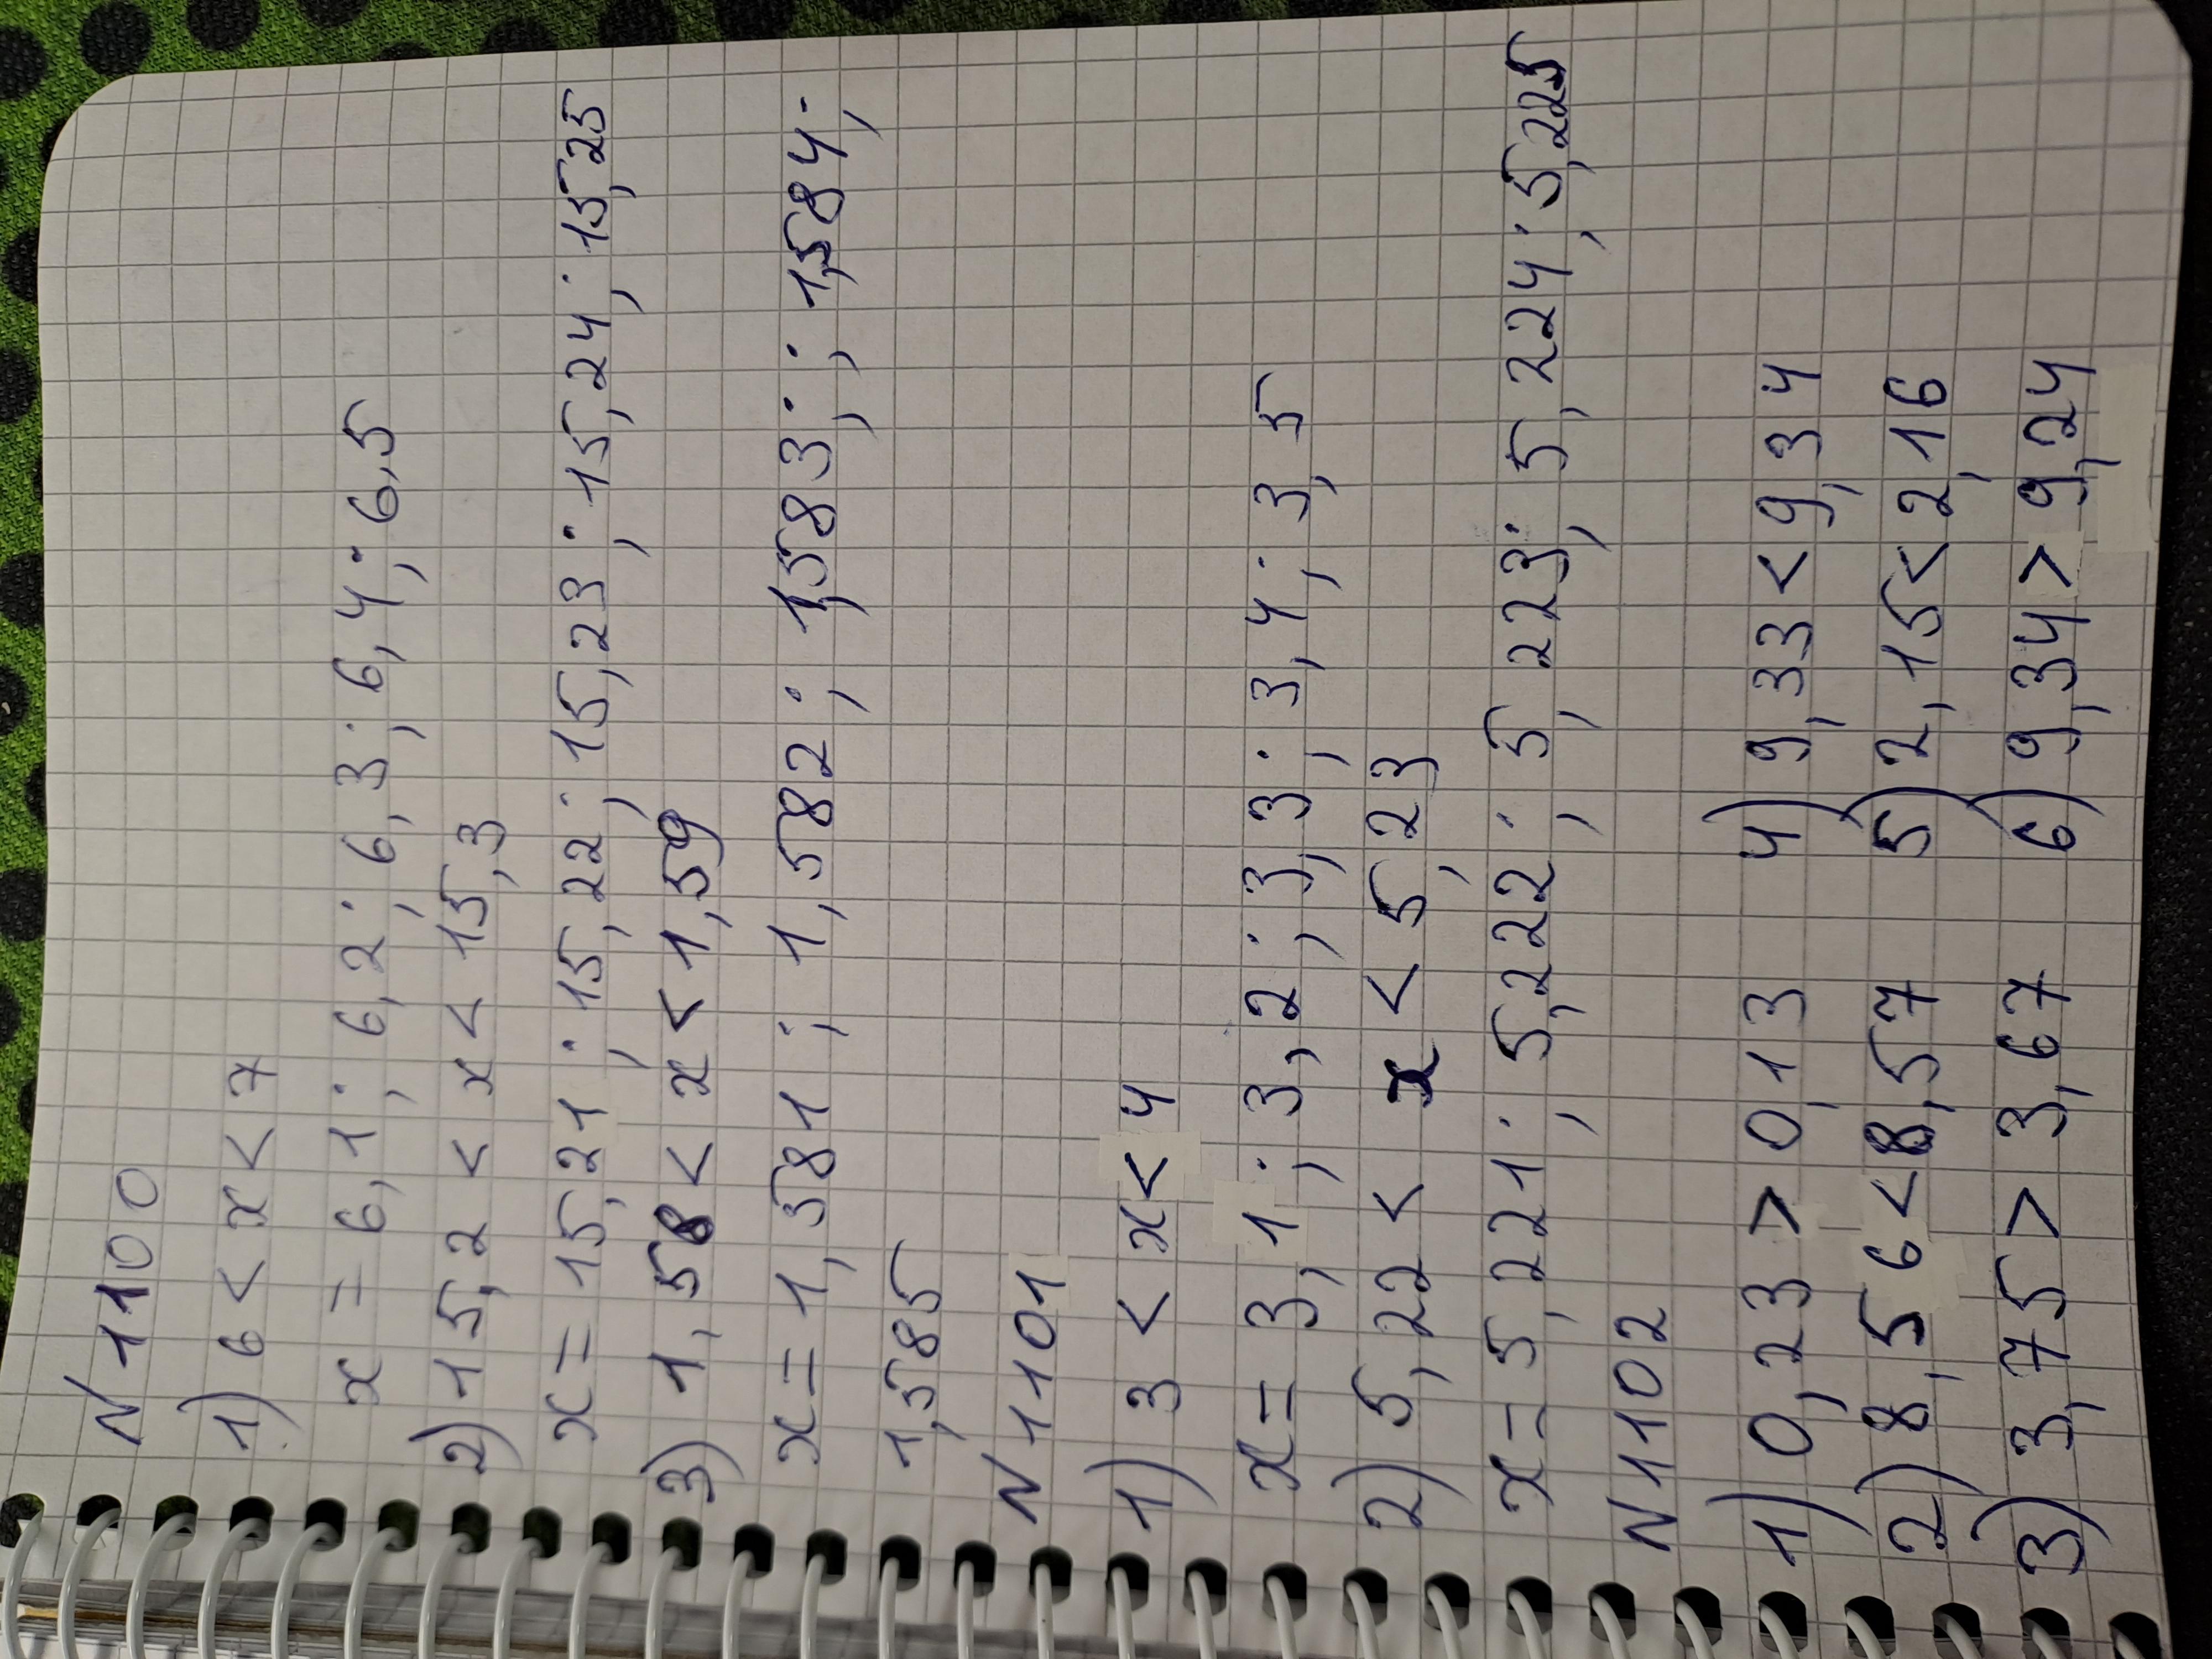 N 1100
1) 6 < x < 7
x = 6,1; 6,2; 6,3; 6,4; 6,5
2) 15,2 < x < 15,3
x = 15,21; 15,22; 15,23; 15,24; 15,25
3) 1,58 < x < 1,59
x = 1,581; 1,582; 1,583; 1,584;
1,585
N 1101
1) 3 < x < 4
x = 3,1; 3,2; 3,3; 3,4; 3,5
2) 5,22 < x < 5,23
x = 5,221; 5,222; 5,223; 5,224; 5,225
N 1102
1) 0,23 > 0,13 4) 9,33 < 9,34
2) 8,56 < 8,57 5) 2,15 < 2,16
3) 3,75 > 3,67 6) 9,34 > 9,24